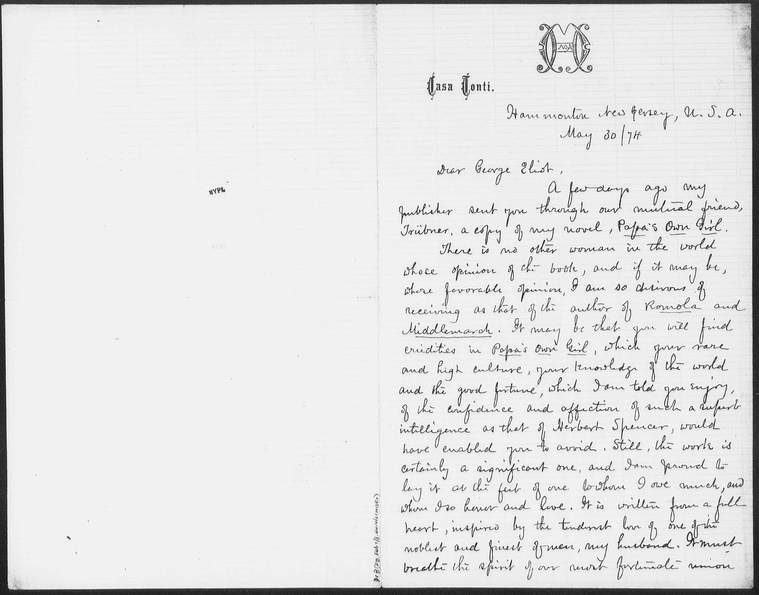 Casa Tonti.
Hammonton New Jersey, U. S. A.
May 30/74
Dear George Eliot,
A few days ago my
publisher sent you through our mutual friend,
Trübner, a copy of my novel, Papa's Own Girl.
There is no other woman in the world
whose opinion of the book, and if it may be,
whose favorable opinion, I am so desirous of
receiving as that of the author of Romola and
Middlemarch. It may be that you will find
crudities in Papa's Own Girl, which your rare
and high culture, your knowledge of the world
and the good fortune, which I am told you enjoy,
of the confidence and affection of such a superb
intelligence as that of Herbert Spencer, would
have enabled you to avoid. Still, the work is
certainly a significant one, and I am proud to
lay it at the feet of one to whom I owe much, and
whom I so honor and love. It is written from a full
heart, inspired by the tenderest love of one of the
noblest and finest of men, my husband. It must
breathe the spirit of our most fortunate union
NYPL